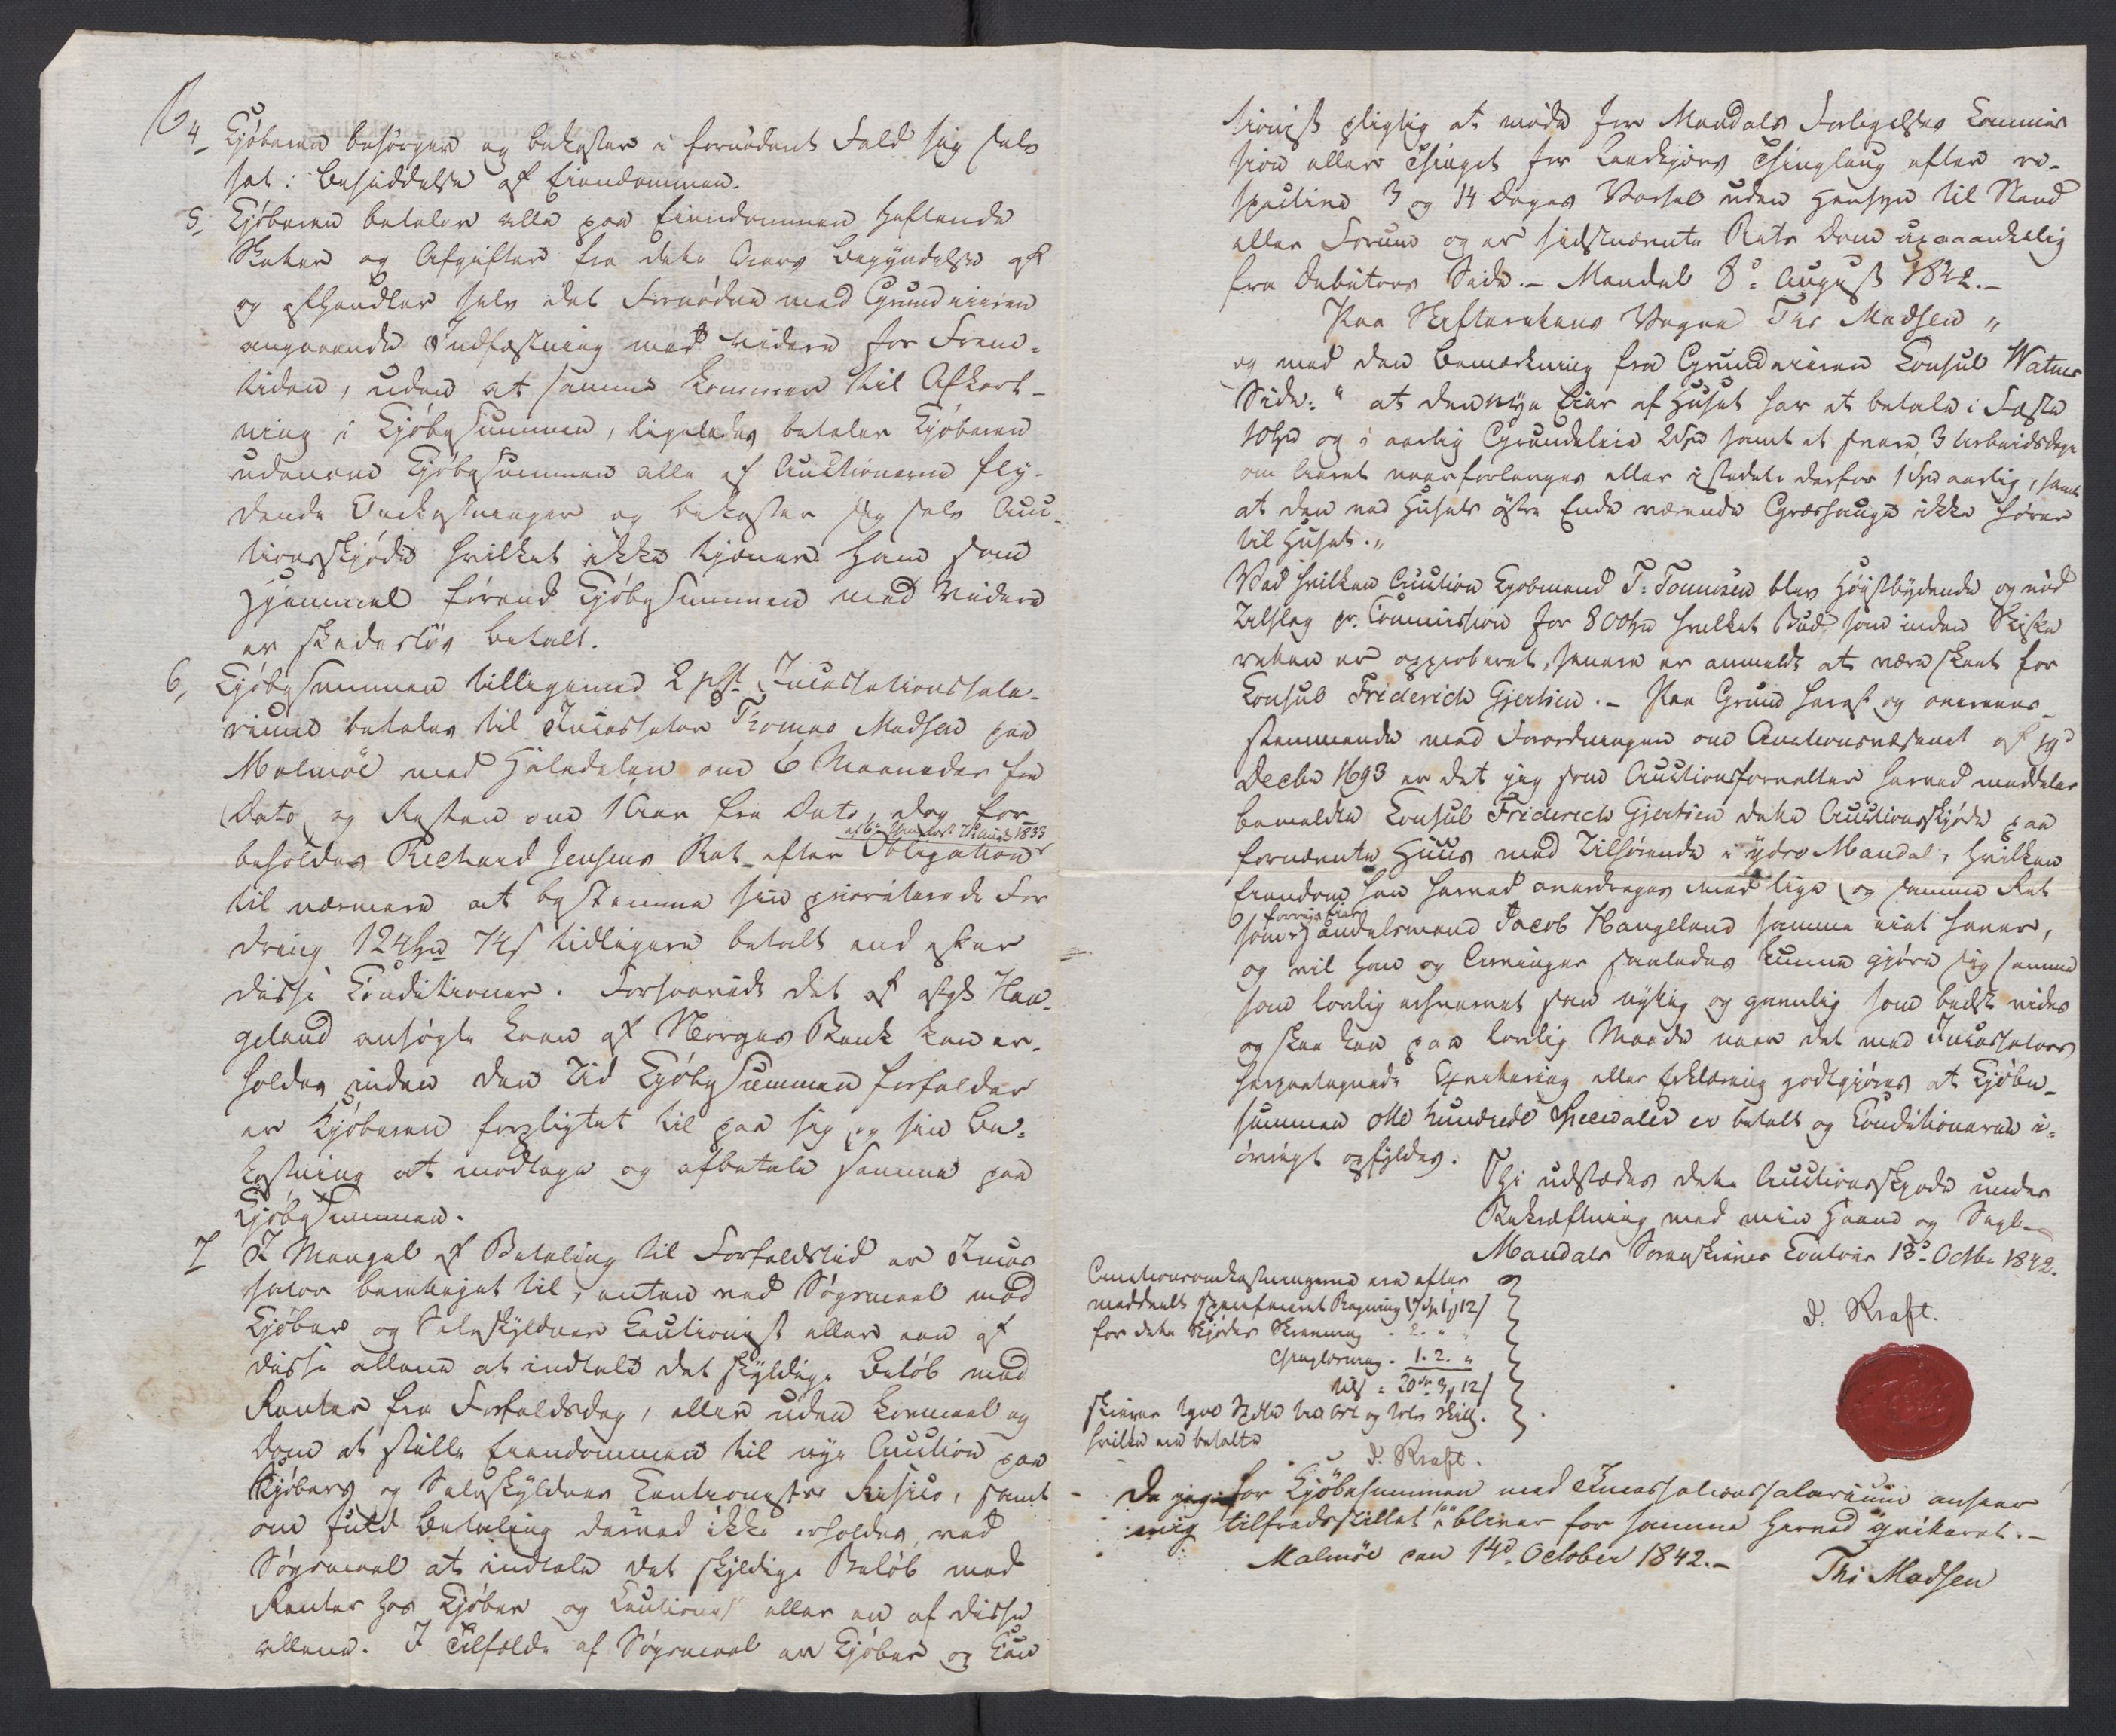 4, Kjøberen besørger og bekoster i fornødent Fald sig selv
sat i Besiddelse af Eiendommen.
5, Kjøberen betaler alle paa Eiendommen heftende
Skatter og Afgifter fra dette Aars Begyndelse af
og afhandler selv det Fornødne med Grundeieren
angaaende Indfæstning med videre for Frem-
tiden, uden at samme kommer til Afkort-
ning i Kjøbesummen, ligeledes betaler Kjøberen
udenom Kjøbesummen alle af Auctionerne fly-
dende Omkostninger og bekoster sig selv Auc-
tionsskjøde hvilket ikke tjener ham som
Hjemmel førend Kjøbesummen med Videre
er skadesløs betalt.
6, Kjøbesummen tilligemed 2 pCt. Incassationssala-
rium betales til Incassator Thomas Madsen paa
Malmöe med Halvdelen om 6 Maaneder fra
Dato og Resten om 1 Aar fra Dato, dog for-
beholdes Richard Jensens Ret efter Obligation
1833
til nærmere at bestemme sin prioriterede For
dring 124 Spd 74 s tidligere betalt end efter
disse Conditioner. Forsaavidt det af afgk Hau-
geland ansøgte Laan af Norges Bank kan er-
holdes inden den Tid Kjøbesummen forfalder
er Kjøberen forpligtet til paa sig og sin Be-
kostning at modtage og afbetale samme paa
Kjøbesummen.
7 I Mangel af Betaling til Forfaldstid er Incas
sator berettiget til, enten ved Søgsmaal mod
Kjøber og Selvskyldner Cautionist eller een af
disse allene at indtale det skyldige Beløb med
Renter fra Forfaldsdag, eller uden Lovmaal og
Dom at stille Eiendommen til nye Auction paa
Kjøbers og Selvskyldner Cautionistes Risico, samt
om fuld Betaling derved ikke erholdes, ved
Søgsmaal at indtale det skyldige Beløb med
Renter hos Kjøber og Cautionist eller en af disse
allene. I Tilfælde af Søgsmaal er Kjøber og Cau
tionist pligtig at møde for Mandals Forligelses Commis
sion eller Thinget for Thinglaug efter re-
spective 3 og 14 Dages Varsel uden Hensyn til Stand
eller Forum og er sidstnævnte Rets Dom upaaankelig
fra Debitors Side. – Mandal 8de August 1842. –
Paa Skifterettens Vegne Ths Madsen "
og med den Bemærkning fra Grundeieren Consul Watnes
Side: " at den nye Eier af Huset har at betale i Fæste
10 Spd og i aarlig Grundeleie 2 Spd samt at svare 3 Arbeidsdage
om Aaret naar forlanges eller istedet derfor 1 Spd aarlig, samt
at den ved Husets østre Ende værende Græshauge ikke hører
til Huset. "
Ved hvilken Auction Kjøbmand T. Tønnesen blev Høistbydende og nød
Tilslag pr. Commission for 800 Spd hvilket Bud som inden Skifte
retten er approberet, senere er anmeldt at være skeet for
Consul Friderich Gjertsen. – Paa Grund heraf og overeens-
stemmende med Forordningen om Auctionsvæsenet af 19d
Decbr 1693 er det jeg som Auctionsforvalter herved meddeler
bemeldte Consul Friderich Gjertsen dette Auctionsskjøde paa
fornævnte Huus med Tilhørende i ydre Mandal, hvilken
Eiendom han herved overdrages med lige og samme Ret
forrige Eier
som Handelsmand Jacob Haugeland samme eiet haver,
og vil han og Arvinger saaledes kunne gjøre sig samme
som lovlig erhvervet saa nyttig og gavnlig som bedst vides
og skee kan paa lovlig Maade naar det med Incassators
herpaategnede Qvittering eller Erklæring godtgjøres at Kjøbe-
summen otte hundrede Speciedaler er betalt og Conditionerne i-
øvrigt opfyldes.
Thi udstædes dette Auctionsskjøde under
Bekræftning med min Haand og Segl. –
Mandals Sorenskriver Contoir 13de Octbr 1842.
D. Kraft.
Auctionsomkostningerne ere efter
meddeelt specificeret Regning 17 Sp 1 12 s
for dette Skjødes Skrivning . 2. " "
Thinglæsning . 1. 2. "
tils = 20 Sp. 3 12 s
skriver tyve Spdlr tre Ort og tolv Skill.
hvilke ere betalte
D. Kraft.
Da jeg for Kjøbesummen med Incassationssalarium anseer
mig tilfredsstillet saa bliver for samme herved qvitteret. –
Malmöe den 14d. October 1842. –
Ths Madsen